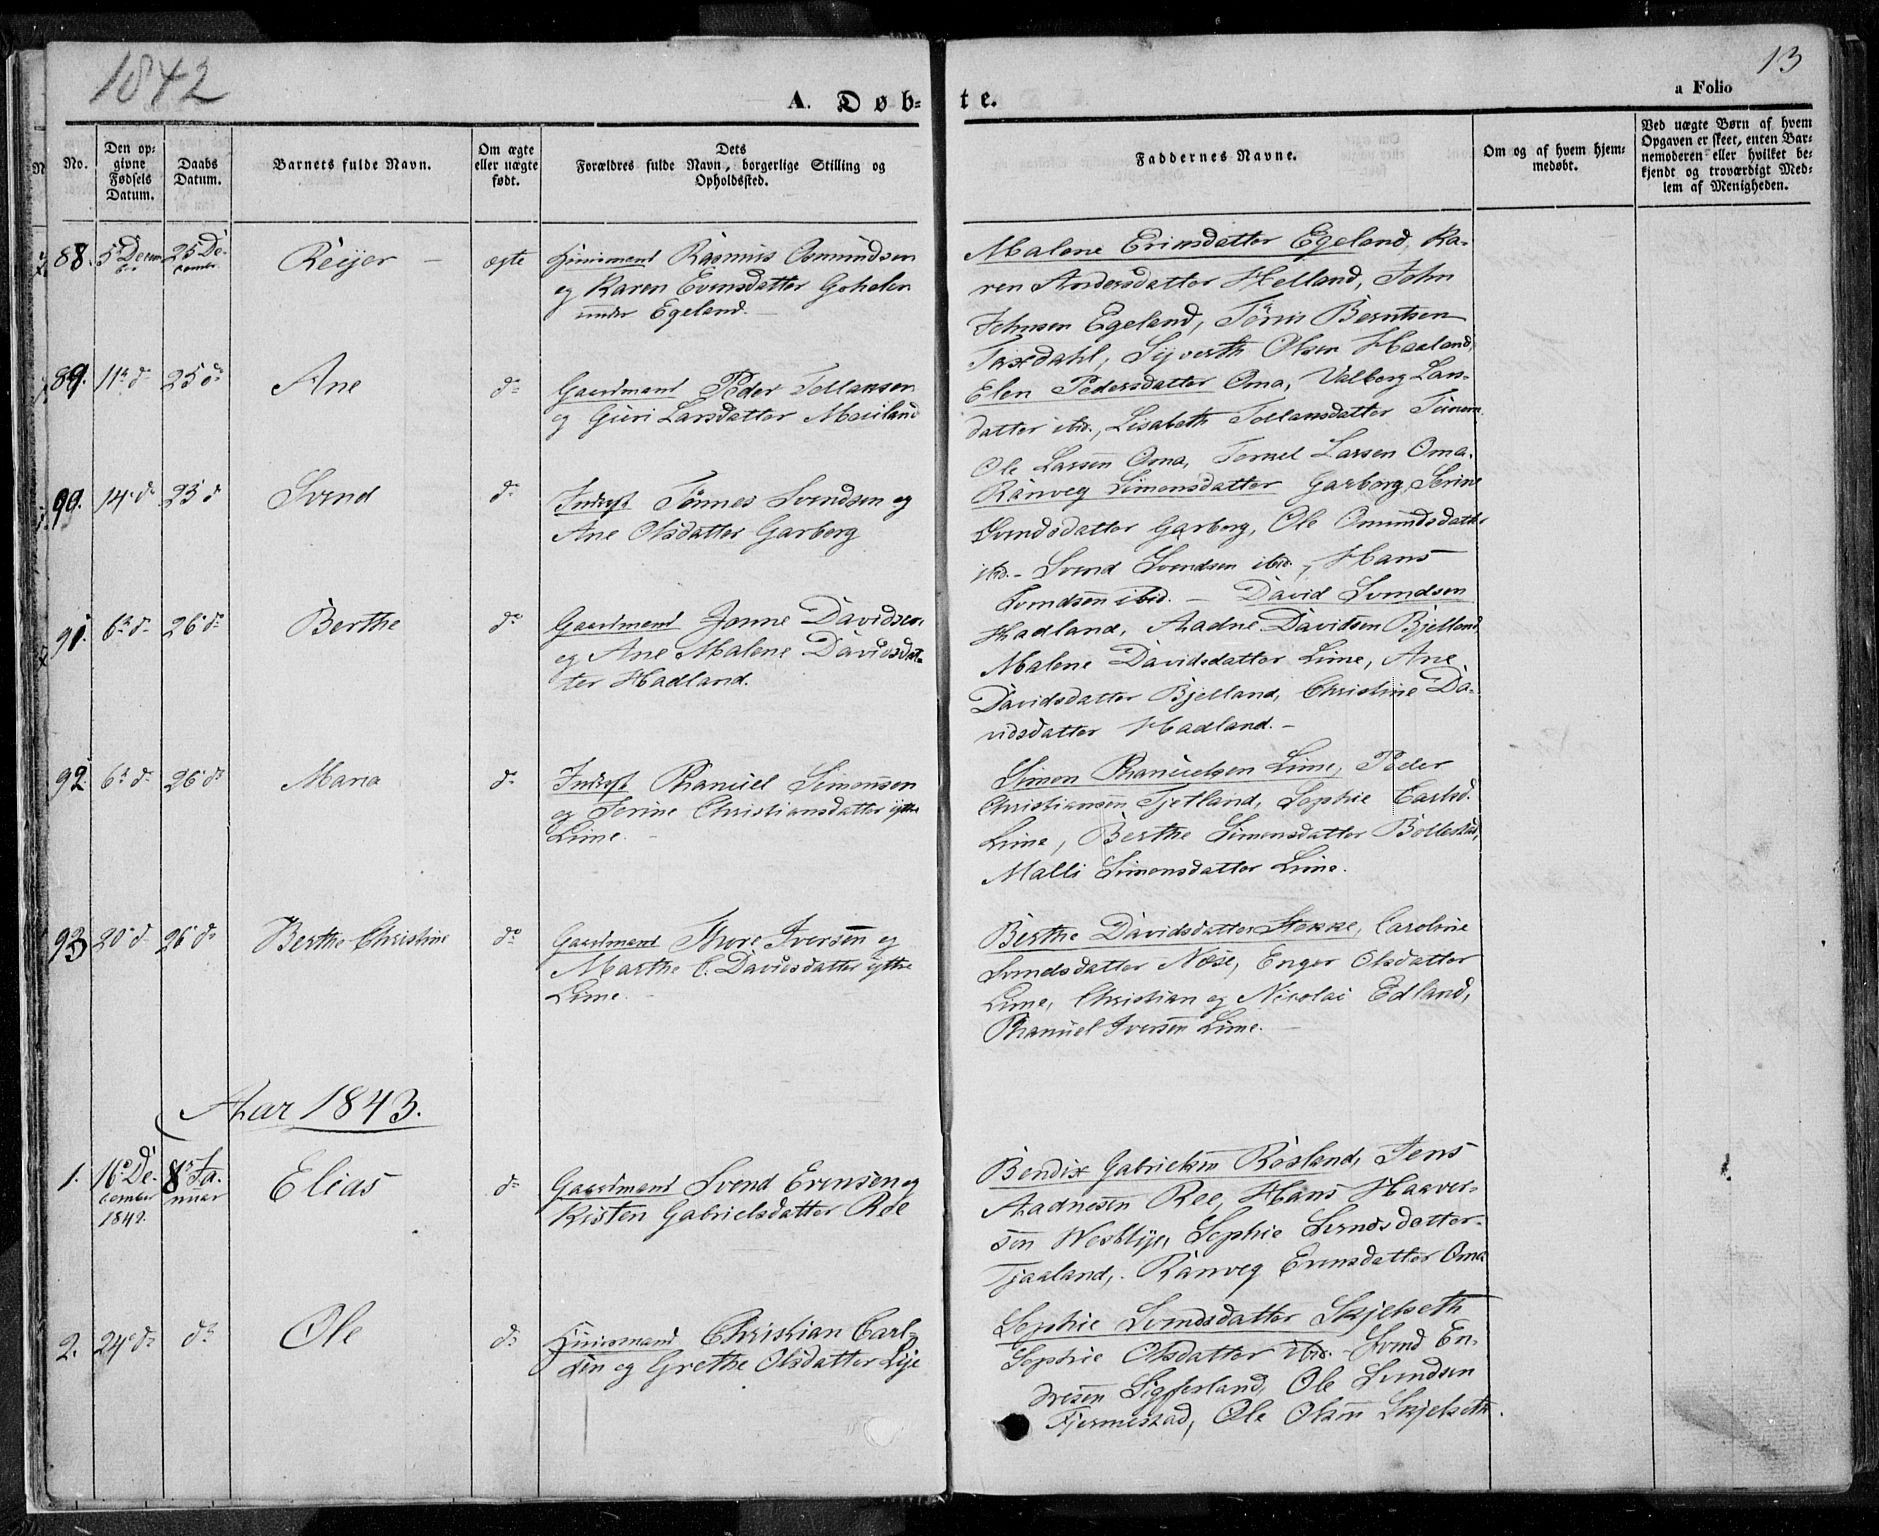 1842
13
A. Døb-
te.
a Folio
No.
Den op-
givne
Fødsels
Datum.
Daabs
Datum.
Barnets fulde Navn.
Om ægte
eller uægte
født.
Dets
Forældres fulde Navn, borgerlige Stilling og
Opholdssted.
Faddernes Navne.
Om og af hvem hjem-
medøbt.
Ved uægte Børn af hvem
Opgaven er skeet, enten Bar-
nemoderen eller hvilket be-
kjendt og troværdigt Med-
lem af Menigheden.
88. 5 Decem
ber
25 De-
cember
Reijer –
ægte
Huusmand Rasmus Osmundsen
og Karen Evensdatter
under Egeland. –
Malene Egeland, Ka-
ren Andersdatter Helland, John
Johnsen Egeland, Tönis Berntsen
Taxdahl, Sijverth Olsen Haaland,
89. 11 d 25 d
Ane
do
Gaardmand Peder Tollaksen
og Guri Larsdatter
Elen Pedersdatter Oma, Valborg Lars-
datter ibid., Lisabeth
Ole Larsen Oma, Larsen Oma.
90. 14 d 25 d
Svend
do
Inderst Tönnes Svendsen og
Ane Olsdatter Garborg
Ranveg Simonsdatter Garborg, Serine
Svendsdatter Garborg, Ole
ibid. – Svend Svendsen ibid., Hans
Svendsen ibid. –
91. 6 d 26 d
Berthe
do
Gaardmand Jonne Davidsen
og Ane Malene Davidsdat-
ter Hadland.
David Svendsen
Hadland, Aadne Davidsen Bjelland,
Malene Davidsdatter Lime, Ane
Davidsdatter Bjelland, Christine Da-
vidsdatter Hadland. –
92. 6 d 26 d
Maria
do
Inderst Phanuel Simonsen
og Serine Christiansdatter ytre
Lime. –
Simon Phanuelsen Lime, Peder
Christiansen Tjetland, Sophie Carlsd.
Lime, Berthe Simonsdatter
Malli Simonsdatter Lime.
93 20 d 26 d
Berthe Christine
do
Gaardmand Thore Iversen og
Marthe C. Davidsdatter ytre
Lime. –
Berthe Davidsdatter Stokke, Caroline
Svendsdatter Næse, Enger Olsdatter
Lime, Christian og Nicolai Edland,
Phanuel Iversen Lime. –
Aar 1843.
1. 16 De-
cember
1842.
8 Ja-
nuar
Elias
do
Gaardmand Svend Evensen og
Kirsten Gabrielsdatter Ree
Bendix Gabrielsen Rosland, Jens
Aadnesen Ree, Hans Haaver-
sen Westlye, Sophie Svendsdatter
Tjaaland, Ranveg Evensdatter Oma
2. 24 d do
Ole
do
Huusmand Christian Carl-
sen og Grethe Olsdatter Lye
Sophie Svendsdatter Skjelseth
Sophie Olsdatter ibid. – Svend En-
dresen Ole Svendsen
Fjermestad, Ole Olsen Skjelseth.